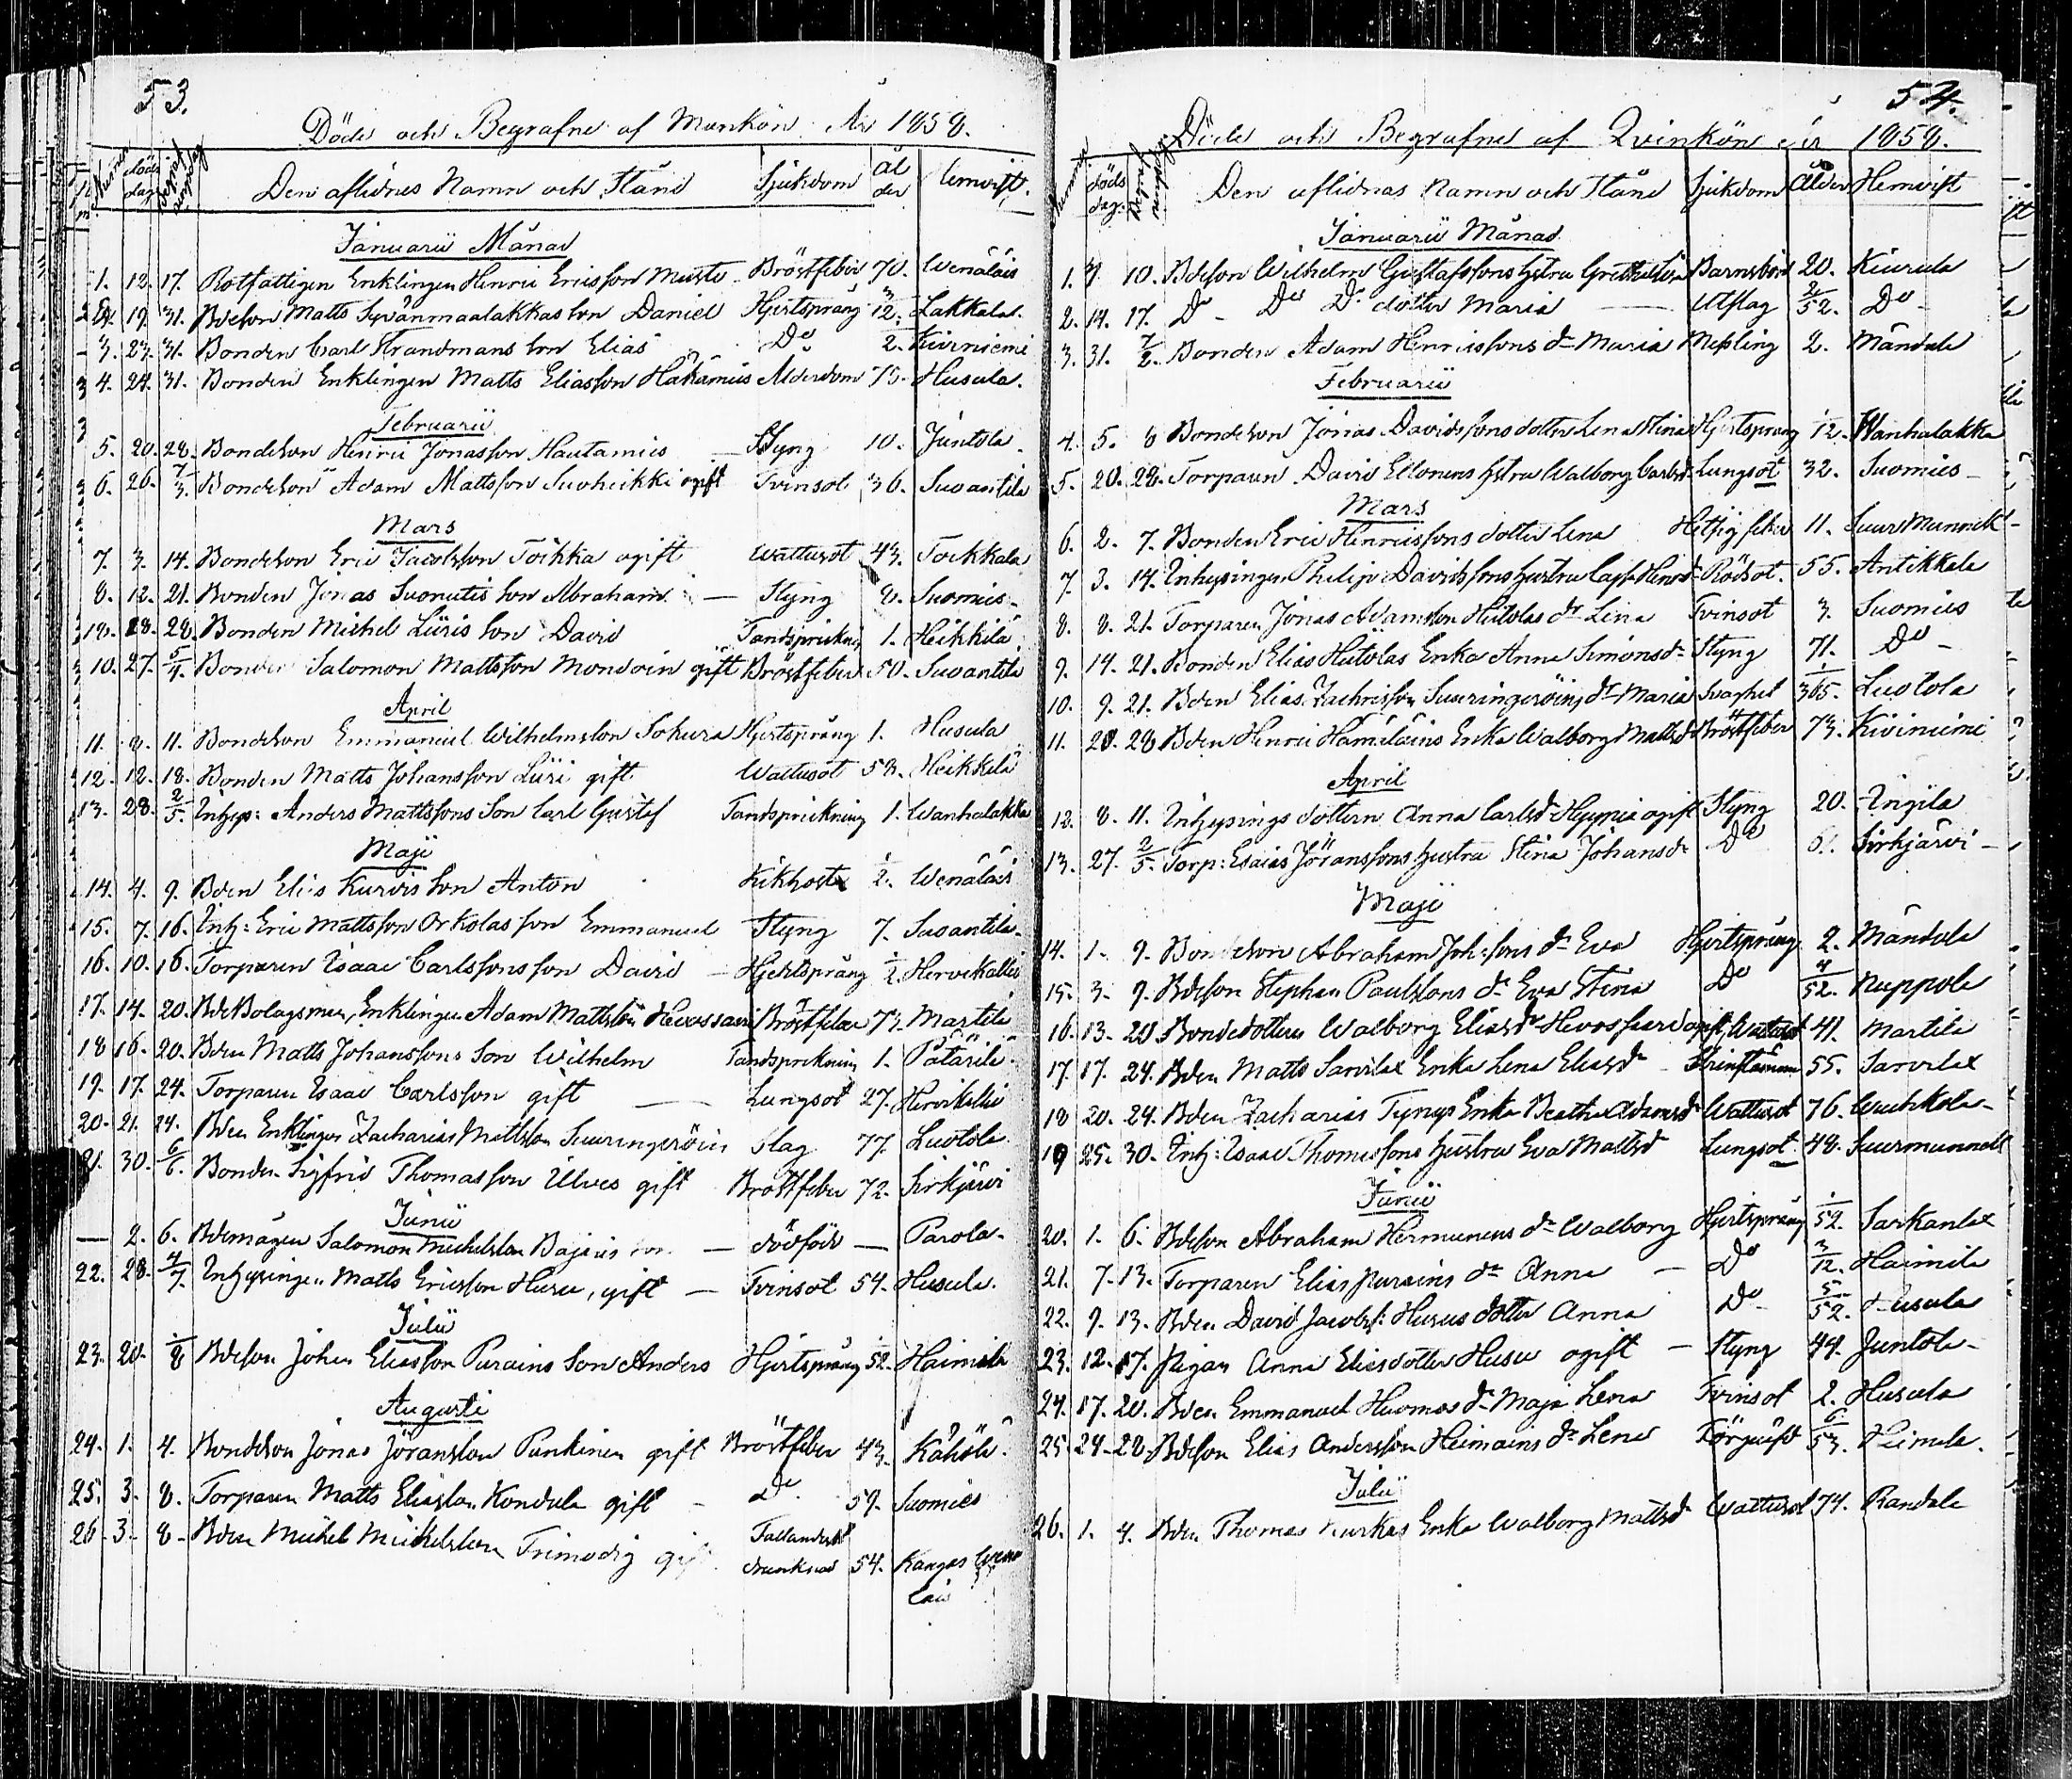 53.
Döde och Begrafne af Mankön År 1858.
Numer döds dag begraf ningsdag Den aflidnes Namn och Stånd Sjukdom ål der Hemvist.
Januarii Månad
1. 12. 17. Rotfattigen Enklingen Henric Ericsson Musto Bröstfeber 70. Wenäläis
19. 31. Bdeson Matts Syvänmaalakkas son Daniel Hjertsprång 3/12. Lakkala.
3. 23. 31. Bonden Carl Strandmans son Elias Do 2. Kiviniemi
4. 24. 31. Bonden Enklingen Matts Eliasson Hakamies Ålderdom 75. Husula.
Februarii
5. 20. 28. Bondeson Henric Jonasson Hautamies Styng 10. Juntola
6. 26. 7/3. Bondeson Adam Mattsson Suoheikki ogift Tvinsot 36. Suoantila
Mars
7. 3. 14. Bondeson Eric Jacobsson Toikka ogift Wattusot 43. Toikkala
8. 12. 21. Bonden Jonas Suomutis son Abraham — Styng 8. Suomies
18. 28 Bonden Michel Liiris son David Tandsprickning 1. Heikkilä
10. 27. 5/4. Bonden Salomon Mattsson Mondoin gift Bröstfeber 50. Suoantila
April
11. 8. 11. Bondeson Emmanuel Wilhelmsson Sokura Hjertsprång 1. Husula
12. 12. 18. Bonden Matts Johansson Liiri gift Wattusot 53. Heikkilä
13. 28. 2/5. Inhys: Anders Mattssons Son Carl Gustaf Tandsprickning 1. Wanhalakka
Maji
14. 4. 9. Bden Elias Kurvis son Anton Kikhosta 1/2. Wenäläis
15. 7. 16. Inh: Eric Mattsson Orkolas son Emmanuel Styng 7. Suoantila
16. 10. 16. Torparen Isaac Carlssons son David — Hjertsprång 1/2. Hervikallio
17. 14. 20. Bde Bolagsman, Enklingen Adam Mattsson Hevossaari Bröstfeber 73. Martila
18 16. 20. Bden Matts Johanssons Son Wilhelm Tandsprickning 1. Pätärilä
19. 17. 24. Torparen Isaac Carlsson gift — Lungsot 27. Hervikallio
20. 21. 24. Bden Enklingen Zacharias Mattsson Suuringeröin Slag 77. Luotola
21. 30. 6/6. Bonden Sigfrid Thomasson Ulves gift Bröstfeber 72. Sirkjärvi
Junii
— 2. 6. Bdemågen Salomon Michelsson Bajaris son — dödfödd — Parola.
22. 28. 4/7. Inhysingen Matts Ericsson Husu, gift — Tvinsot 54. Husula.
Julii
23. 20. 1/8 Bdeson Johan Eliasson Purains Son Anders Hjertsprång 1/52. Haimila
Augusti
24. 1. 4. Bondeson Jonas Jöransson Punkinen gift Bröstfeber 43. Kähölä.
25. 3. 8. Torparen Matts Eliasson Kondula gift — Do 59. Suomies
26 3. 8. Bden Michel Michelsson Trimodig gift
Fallandesot
drunknad 54. Kangas Wenä
läis
54.
Döde och Begrafne af Qvinkön år 1858.
Numer döds dag. Begraf ningsdag Den aflidnas Namn och Stånd Sjukdom Ålder Hemvist
Januarii Månad
1. 7 10. Bdeson Wilhelm Gustafssons hstru Greta Lisa Barnsbörd 20. Kiurula
2. 14. 17. Do - Do Do dotter Maria — Utslag 2/52. Do -
3. 31. 7/2. Bonden Adam Henricssons dr Maria Messling 2. Mändälä
Februarii
4. 5. 8 Bondeson Jonas Davidssons dotter Lena Stina Hjertsprång 1/12. Wanhalakka
5. 20. 28. Torparen David Ellonens hstru Walborg Carlsdr Lungsot 32. Suomies -
Mars
6. 2. 7. Bonden Eric Henricssons dotter Lena Hetsig feber 11. Suur Munnik
7. 3. 14. Inhysingen Philip Davidssons hustru Caisa Henrsdr Rödsot. 55. Antikkala
8. 8. 21. Torparen Jonas Adamsson Hietolas dr Lena Tvinsot 3. Suomies
9. 14. 21. Bonden Elias Hietolas Enka Anna Simonsdr Styng 71. Do -
10. 9. 21. Bden Elias Zachrisson Suuringeröins dr Maria Svaghet 1/365. Luotola
11. 20. 28 Bden Henric Hämäläins Enka Walborg Mattsdr Bröstfeber 73. Kiviniemi
April
12. 8. 11. Inhysings dottern Anna Carlsdr Hyypiä ogift Styng 20. Ingila
13. 27. 2/5. Torp: Esaias Jöranssons hustru Stina Johansdr Do 61. Sirkjärvi -
Maji
14. 1. 9. Bondeson Abraham Johssons dr Eva Hjertsprång 2. Mändälä
15. 3. 9. Bdeson Stephan Paulssons dr Eva Stina Do 4/52. Nuppola
16. 13. 20 Bondedottern Walborg Eliasdr Hevossaari ogift, Wattusot 41. Martila
17. 17. 24. Bden Matts Sarvilax Enka Lena Eliasdr - 55. Sarvilax
18 20. 24. Bden Zacharias Tynys Enka Beatha Adamsdr Wattusot 76. Wuohkola -
19 25. 30. Inh: Isaac Thomassons hustru Eva Mattsdr Lungsot. 48. Suurmunnik
Junii
20. 1. 6. Bdeson Abraham Hermunens dr Walborg Hjertsprång 1/52. Sarkanlax
21. 7. 13. Torparen Elias Purains dr Anna — Do 3/12. Haimila
22. 9. 13. Bden David Jacobss: Husus dotter Anna Do - 5/52. Husula
23. 12. 17. Pigan Anna Eliasdotter Husu ogift — Styng 44. Juntola -
24. 17. 20. Bden Emmanuel Huomos dr Maja Lena Tvinsot 2. Husula
25 24 28. Bdeson Elias Andersson Heimains dr Lena Förgiftad Heimala.
Julii
26. 1. 4. Bden Thomas Kurkas Enka Walborg Mattsdr Wattusot 74. Randala